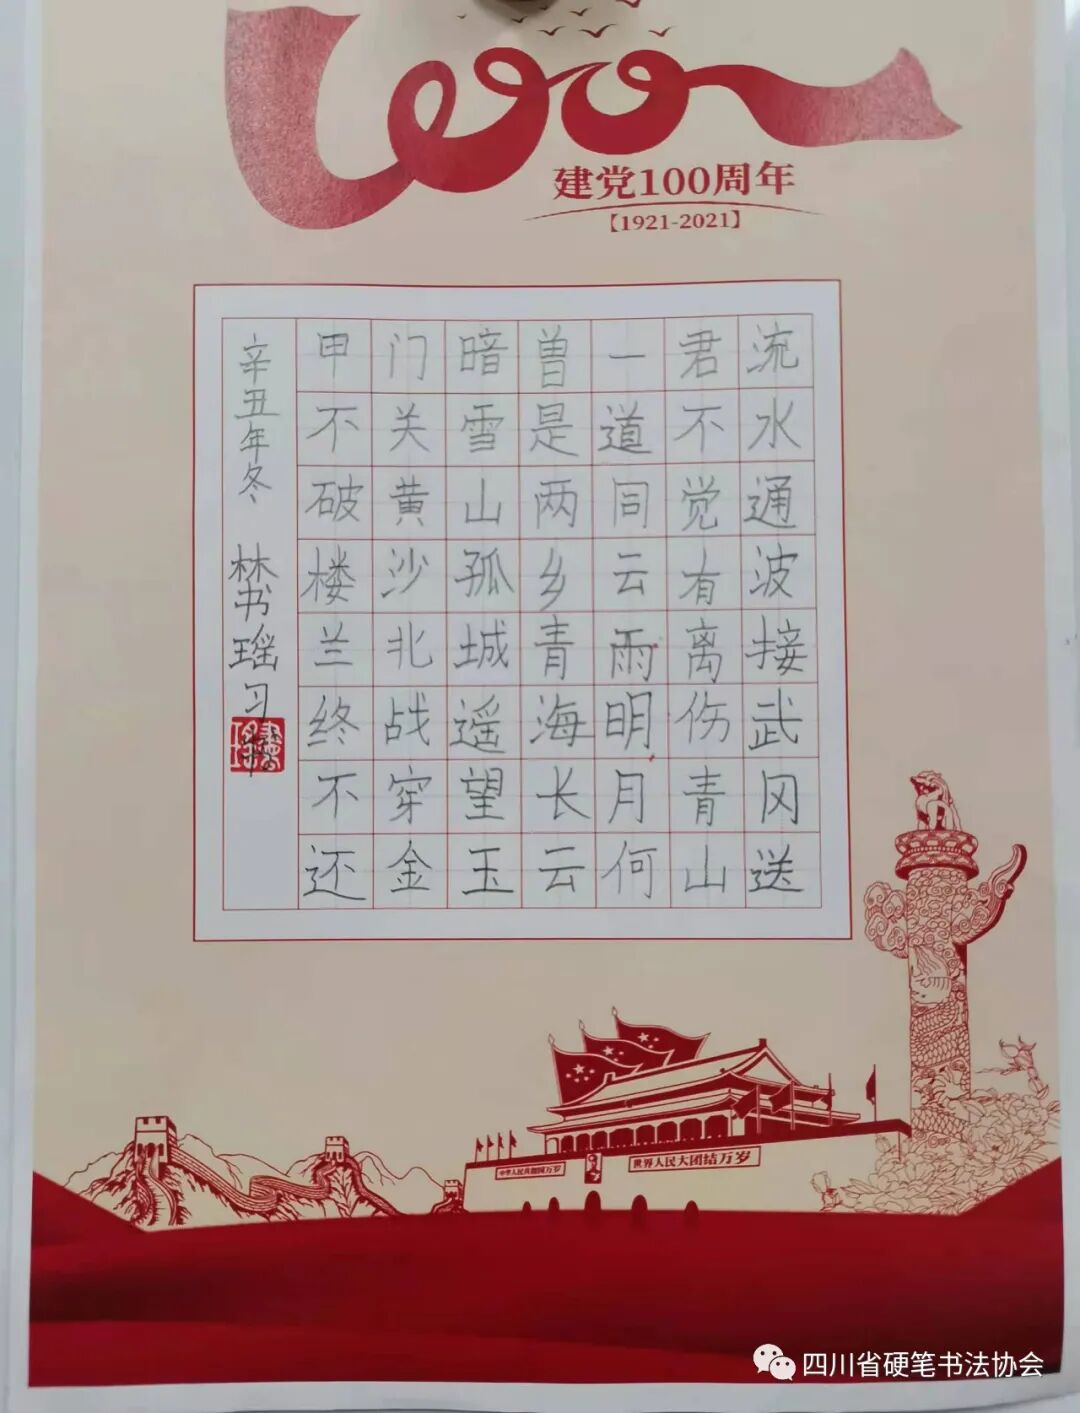 建党100周年
【1921-2021】
流水通波接武冈送
君不觉有离伤青山
一道同云雨明月何
曾是两乡青海长云
暗雪山孤城遥望玉
门关黄沙北战穿金
甲不破楼兰终不还
辛丑年冬 林书瑶习
中华人民共和国万岁
世界人民大团结万岁
四川省硬笔书法协会